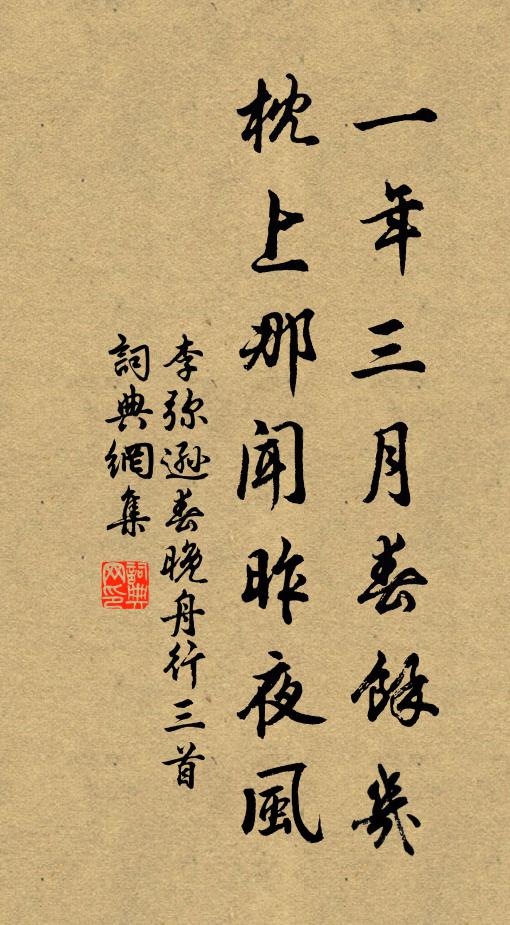 一年三月春餘幾
枕上那聞昨夜風
李弥遜春晚舟行三首
詞典網集
詞典網印